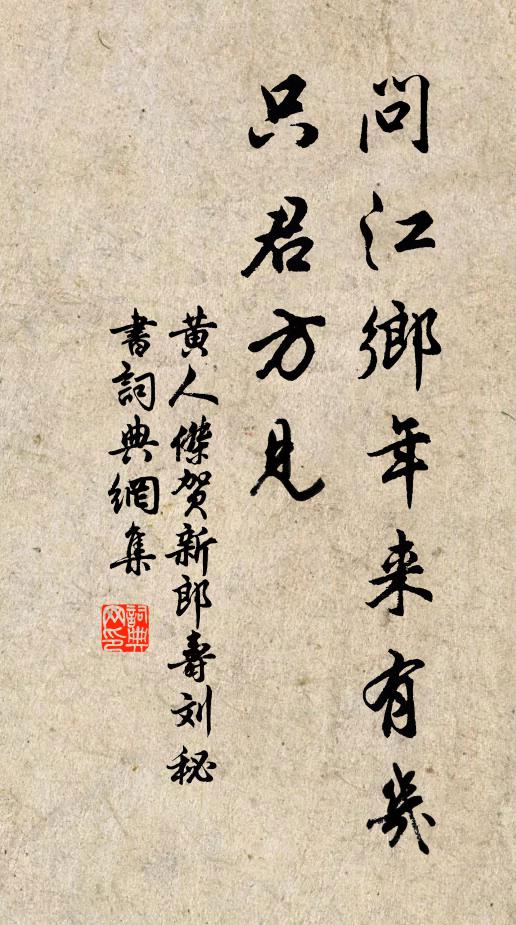 问江鄉年来有幾
只君方見
黄人傑贺新郎壽刘秘
書詞典網集
詞典网印